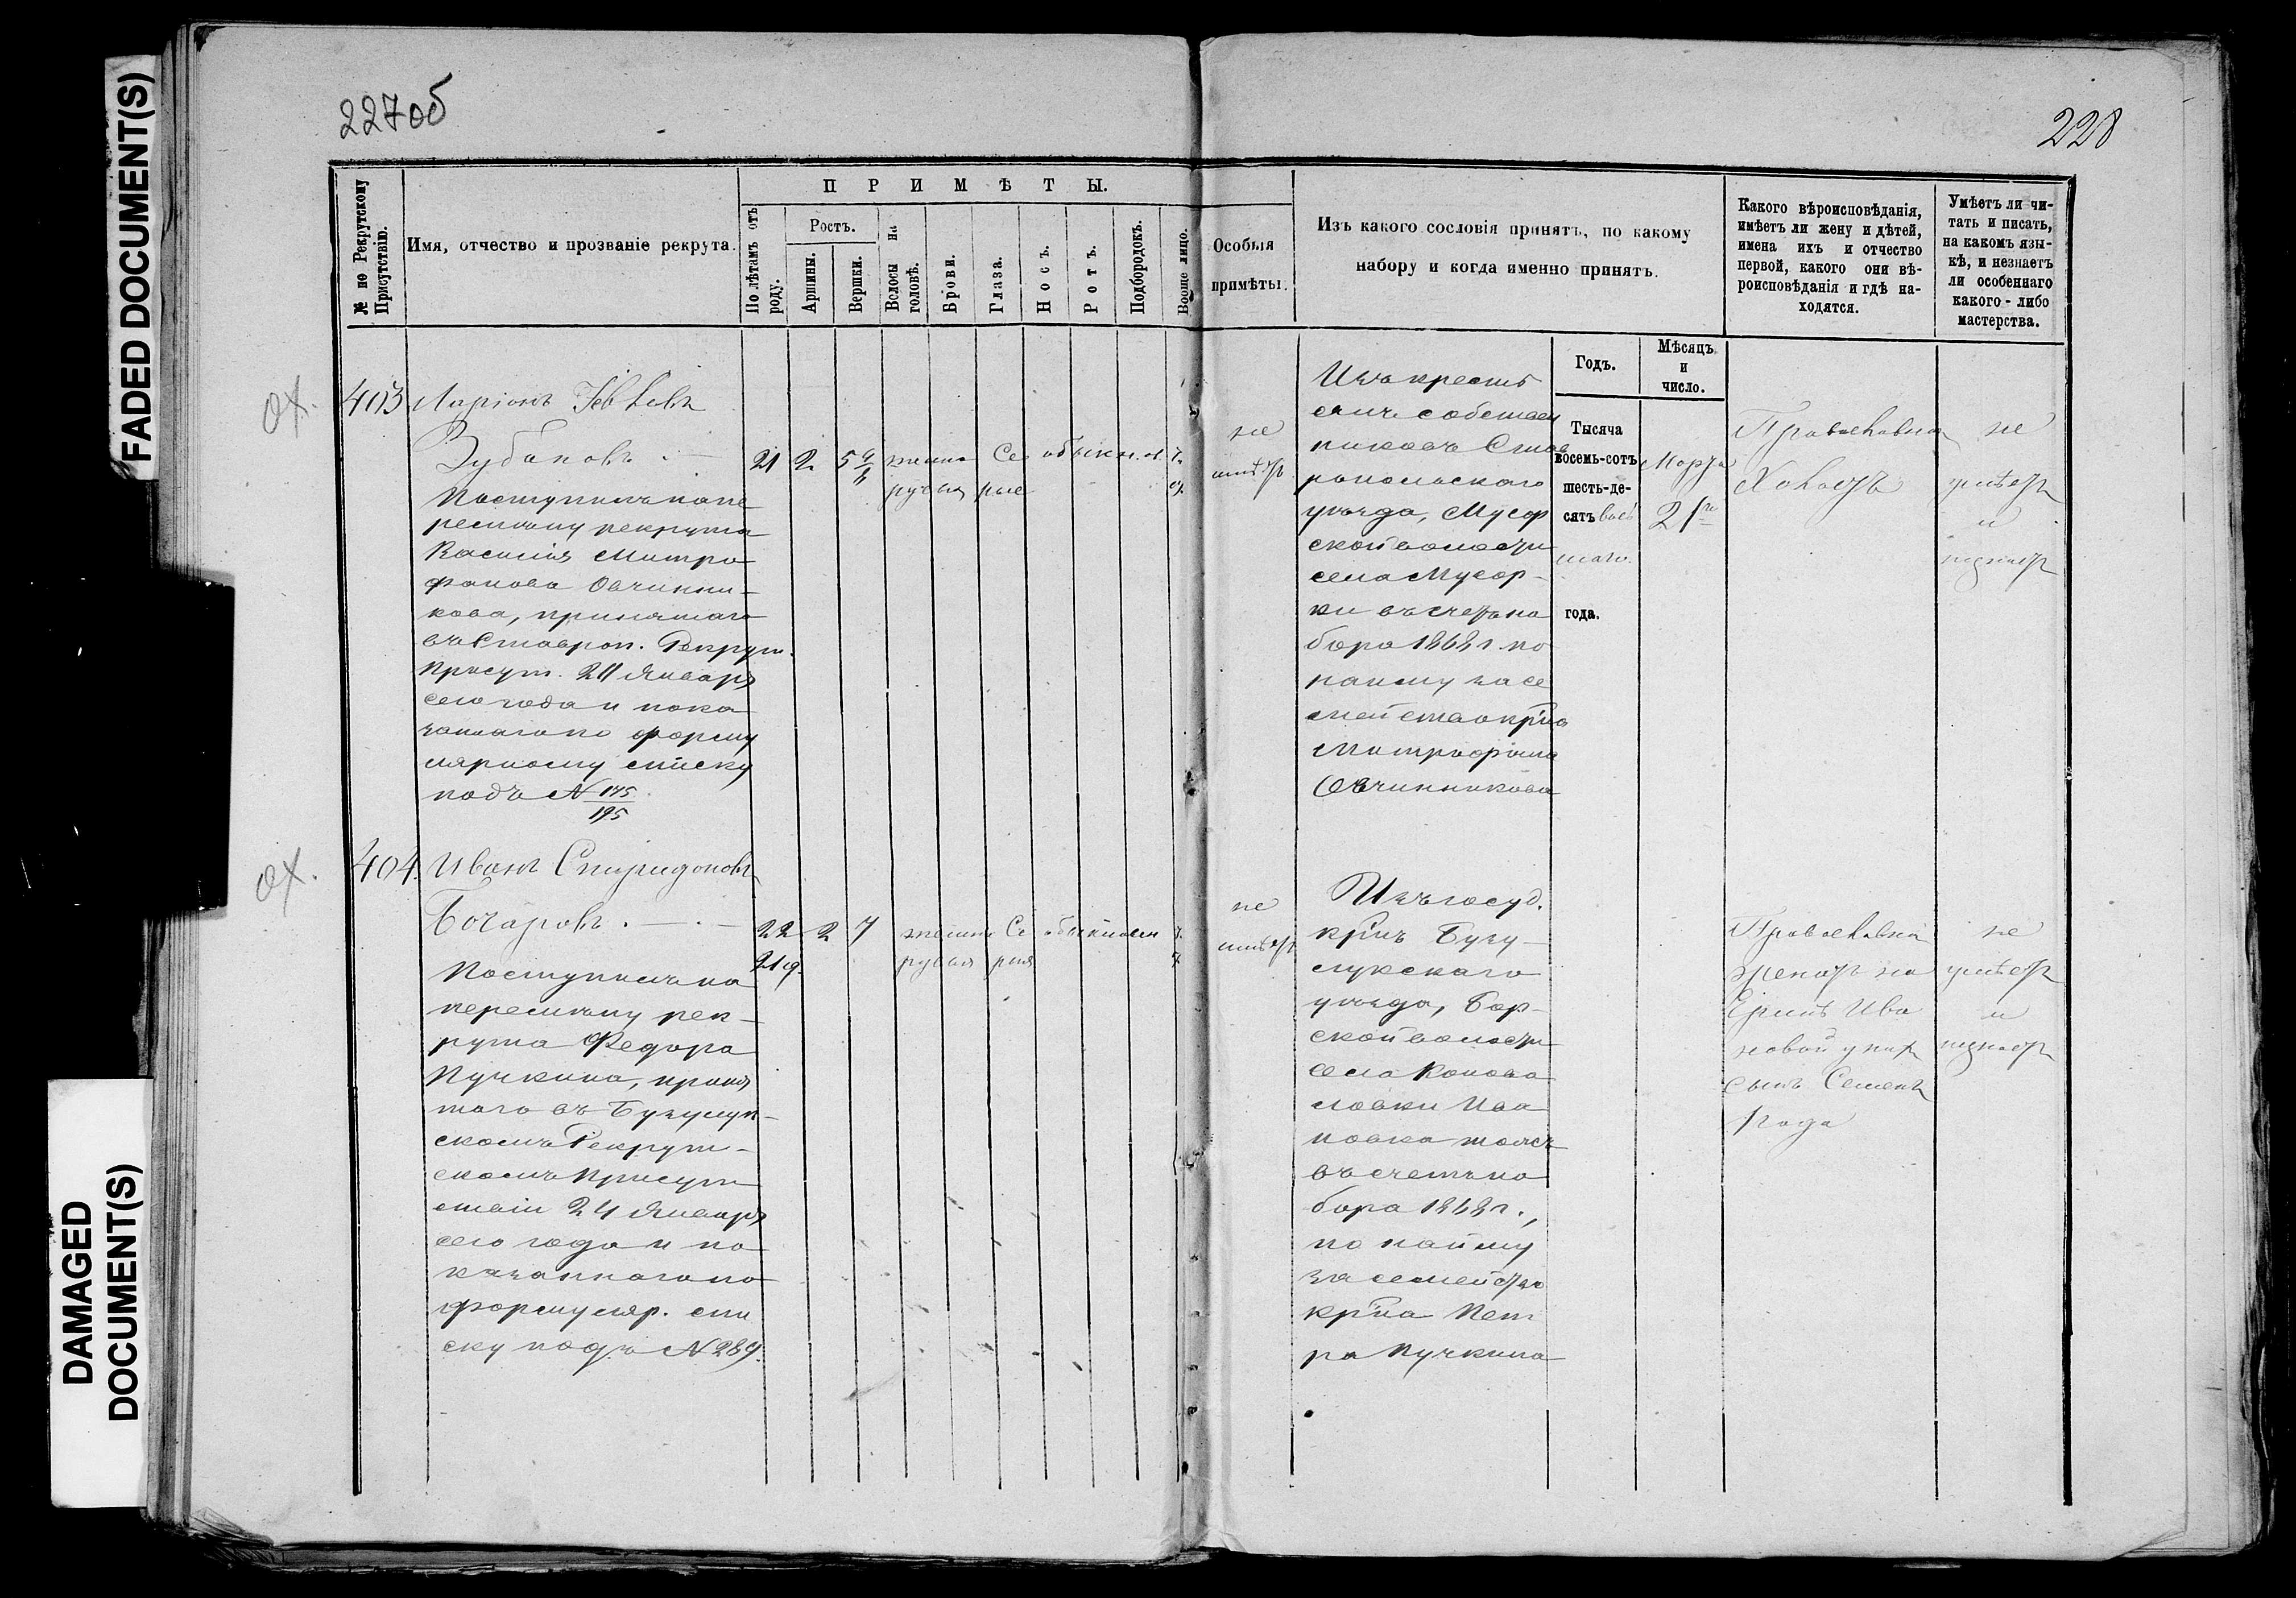 FADED DOCUMENT(S)
DAMAGED
DOCUMENT(S)
227об
228
№ по Рекрутскому
Присутствію.
Имя, отчество и прозваніе рекрута.
ПРИМѢТЫ.
По лѣтамъ отъ
роду.
Ростъ.
Аршины.
Вершки.
Волосы на
головѣ.
Брови.
Глаза.
Носъ.
Ротъ.
Подбородокъ.
Вообще лицо.
Особыя
примѣты.
Изъ какого сословія принятъ, по какому
набору и когда именно принятъ.
Какого вѣроисповѣданія,
имѣетъ ли жену и дѣтей,
имена ихъ и отчество
первой, какого они вѣ-
роисповѣданія и гдѣ на-
ходятся.
Умѣетъ ли чи-
тать и писать,
на какомъ язы-
кѣ, и незнаетъ
ли особеннаго
какого-либо
мастерства.
Годъ.
Мѣсяцъ
и
число.
403
Ларіонъ
Зубановъ
Поступилъ на пе
ремѣну рекрута
Василія Митро
фанова Овчинни-
кова, принятаго
въ Ставроп. Рекрут.
Присут. 24 Января
сего года и пока
заннаго по форму
лярному списку
подъ № 175
195
21 2 5 4/8
темно
русыя
Се
рые
обыкн.
не
имѣетъ
Изъ крестъ
янъ собствен
никовъ Став
ропольскаго
уѣзда, Мусор
ской волости
села Мусор-
ки въ счетъ на
бора 1868 г. по
найму за се
мейство кр-на
Митрофана
Овчинникова
Тысяча
восемь-сотъ
шесть-де-
сятъ вось
маго
года.
Марта
21го
Православна
Холостъ
не
умѣетъ
и
незнаетъ
404.
Иванъ Спиридоновъ
Бочаровъ.
Поступилъ на
перемѣну рек-
рута Федора
Пучкина, приня
таго въ Бузулук-
скомъ Рекрут-
скомъ Присут
ствіи 24 Января
сего года и по-
казаннаго по
формуляр. спи
ску подъ № 289.
22 2 7
темно
русыя
Се
рыя
обыкновен
не
имѣетъ
Изъ госуд.
кр-нъ Бузу-
лукскаго
уѣзда, Бор-
ской волости
села Конова
ловки Ива
новка тожъ
въ счетъ на
бора 1868 г.,
по найму
за семейство
кр-на Пет
ра Пучкина
Православна
женатъ на
Ива
новой у нихъ
сынъ Семенъ
1 года
не
умѣетъ
и
незнаетъ